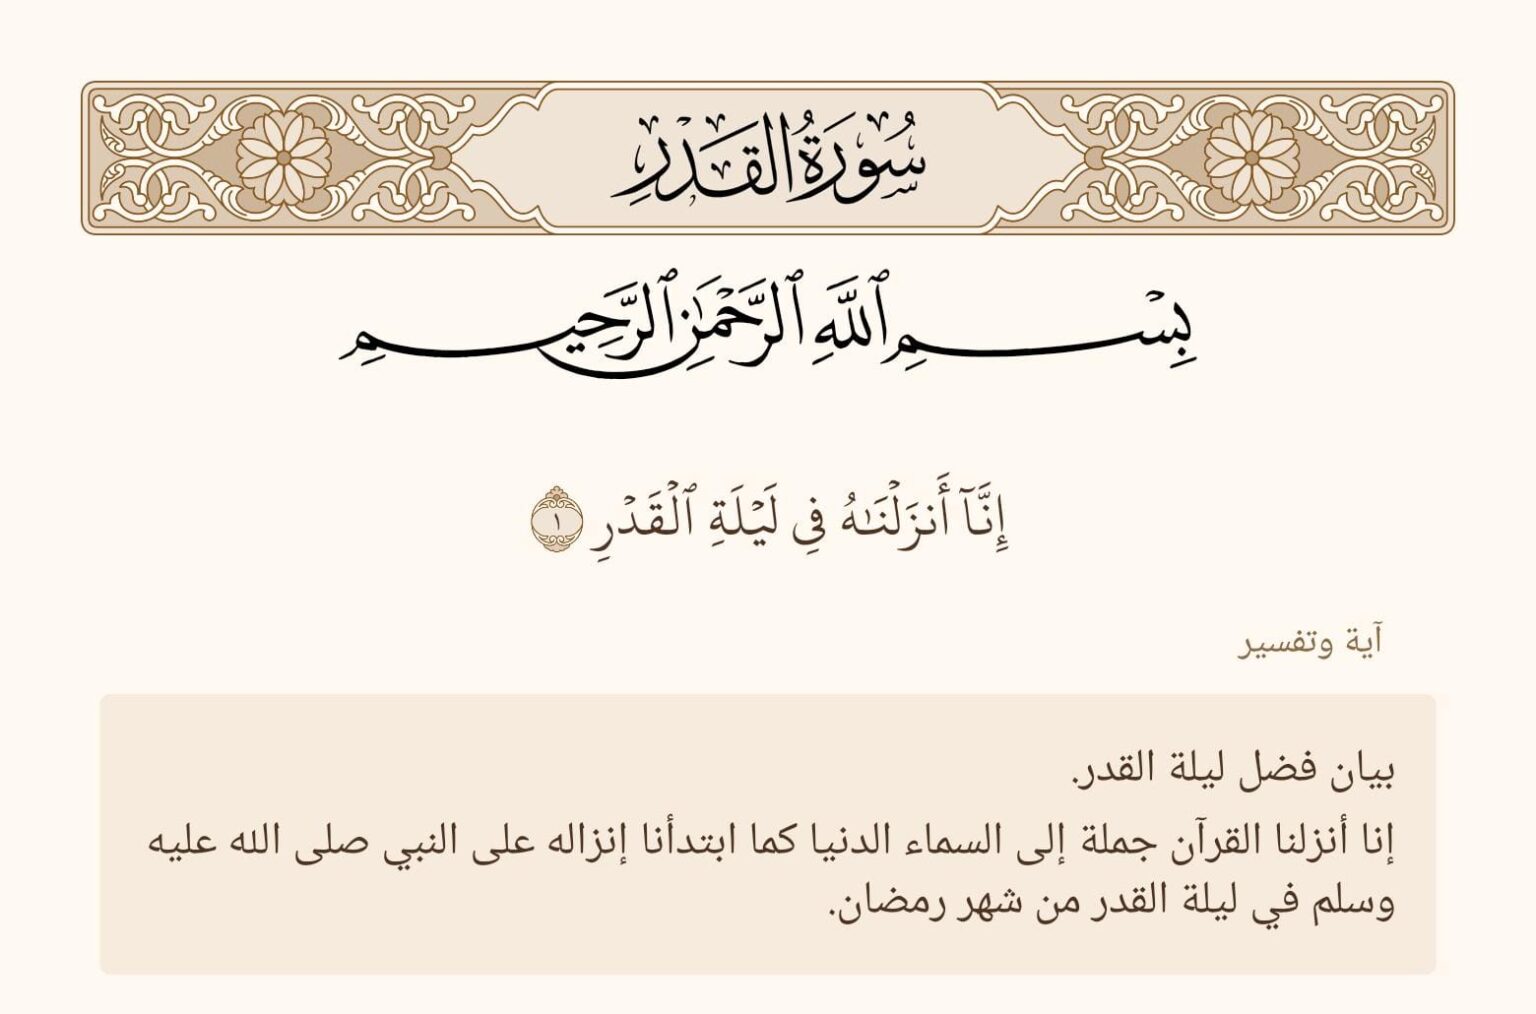 سُورَةُ القَدْرِ
بِسْمِ ٱللَّهِ ٱلرَّحْمَٰنِ ٱلرَّحِيمِ
إِنَّآ أَنزَلْنَـٰهُ فِى لَيْلَةِ ٱلْقَدْرِ ١
آية وتفسير
بيان فضل ليلة القدر.
إنا أنزلنا القرآن جملة إلى السماء الدنيا كما ابتدأنا إنزاله على النبي صلى الله عليه
وسلم في ليلة القدر من شهر رمضان.